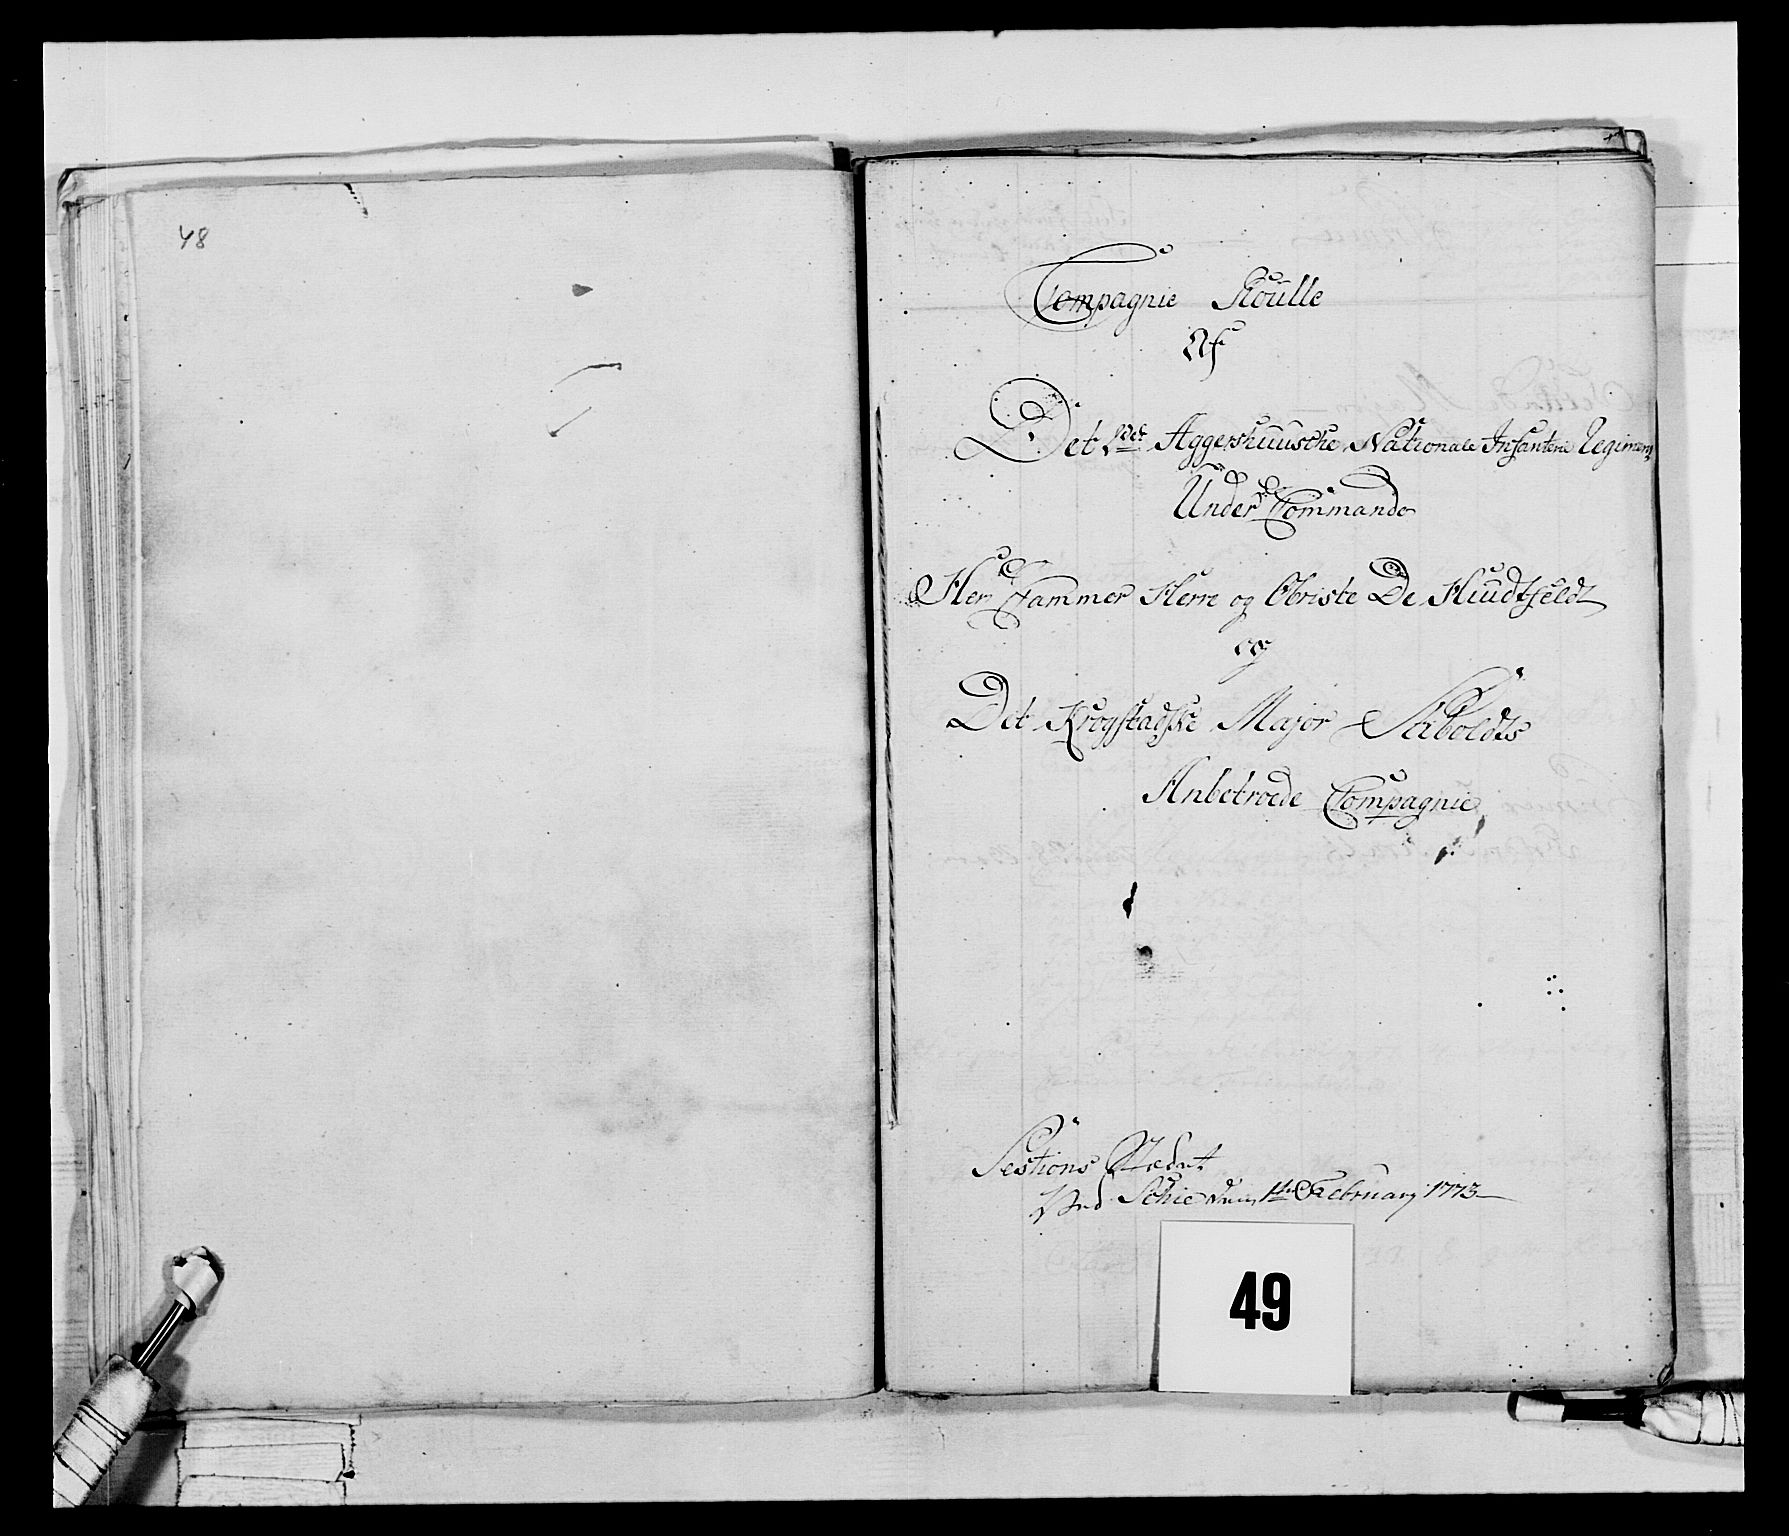 48
Compagnie Roulle
Af
Det 2det Aggershuusche Nationale Infanterie Regiment
Under Commando
Her Cammer Herre og Obriste De Huudtfeldt
og
Det Krogstadske Major Seboldts
Anbetroede Compagnie
Sestions Stedet
Ved Schie den 1te February 1773
49